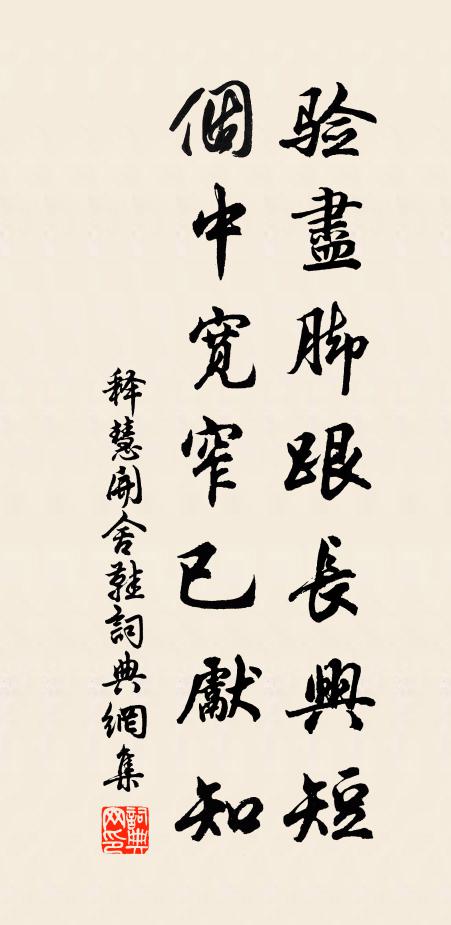 验盡脚跟長興短
個中寬窄已獻知
释慧開舍鞋詞典網集
詞典网印